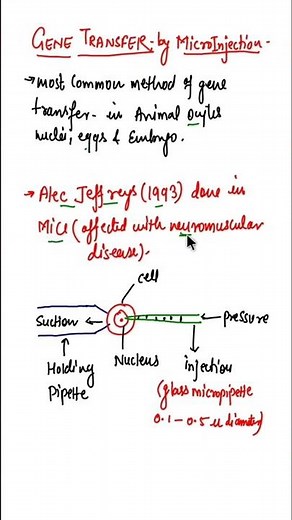 GENE TRANSFER - by MicroInjection -
→ most common method of gene
transfer - in Animal oocytes
nuclei, eggs & Embryo.
→ Alec Jeffreys (1993) done in
Mice (affected with neuromuscular
disease).
cell
Suction
Pressure
Holding
Pipette
Nucleus
injection
(glass micropipette
0.1 - 0.5 µ diameter)